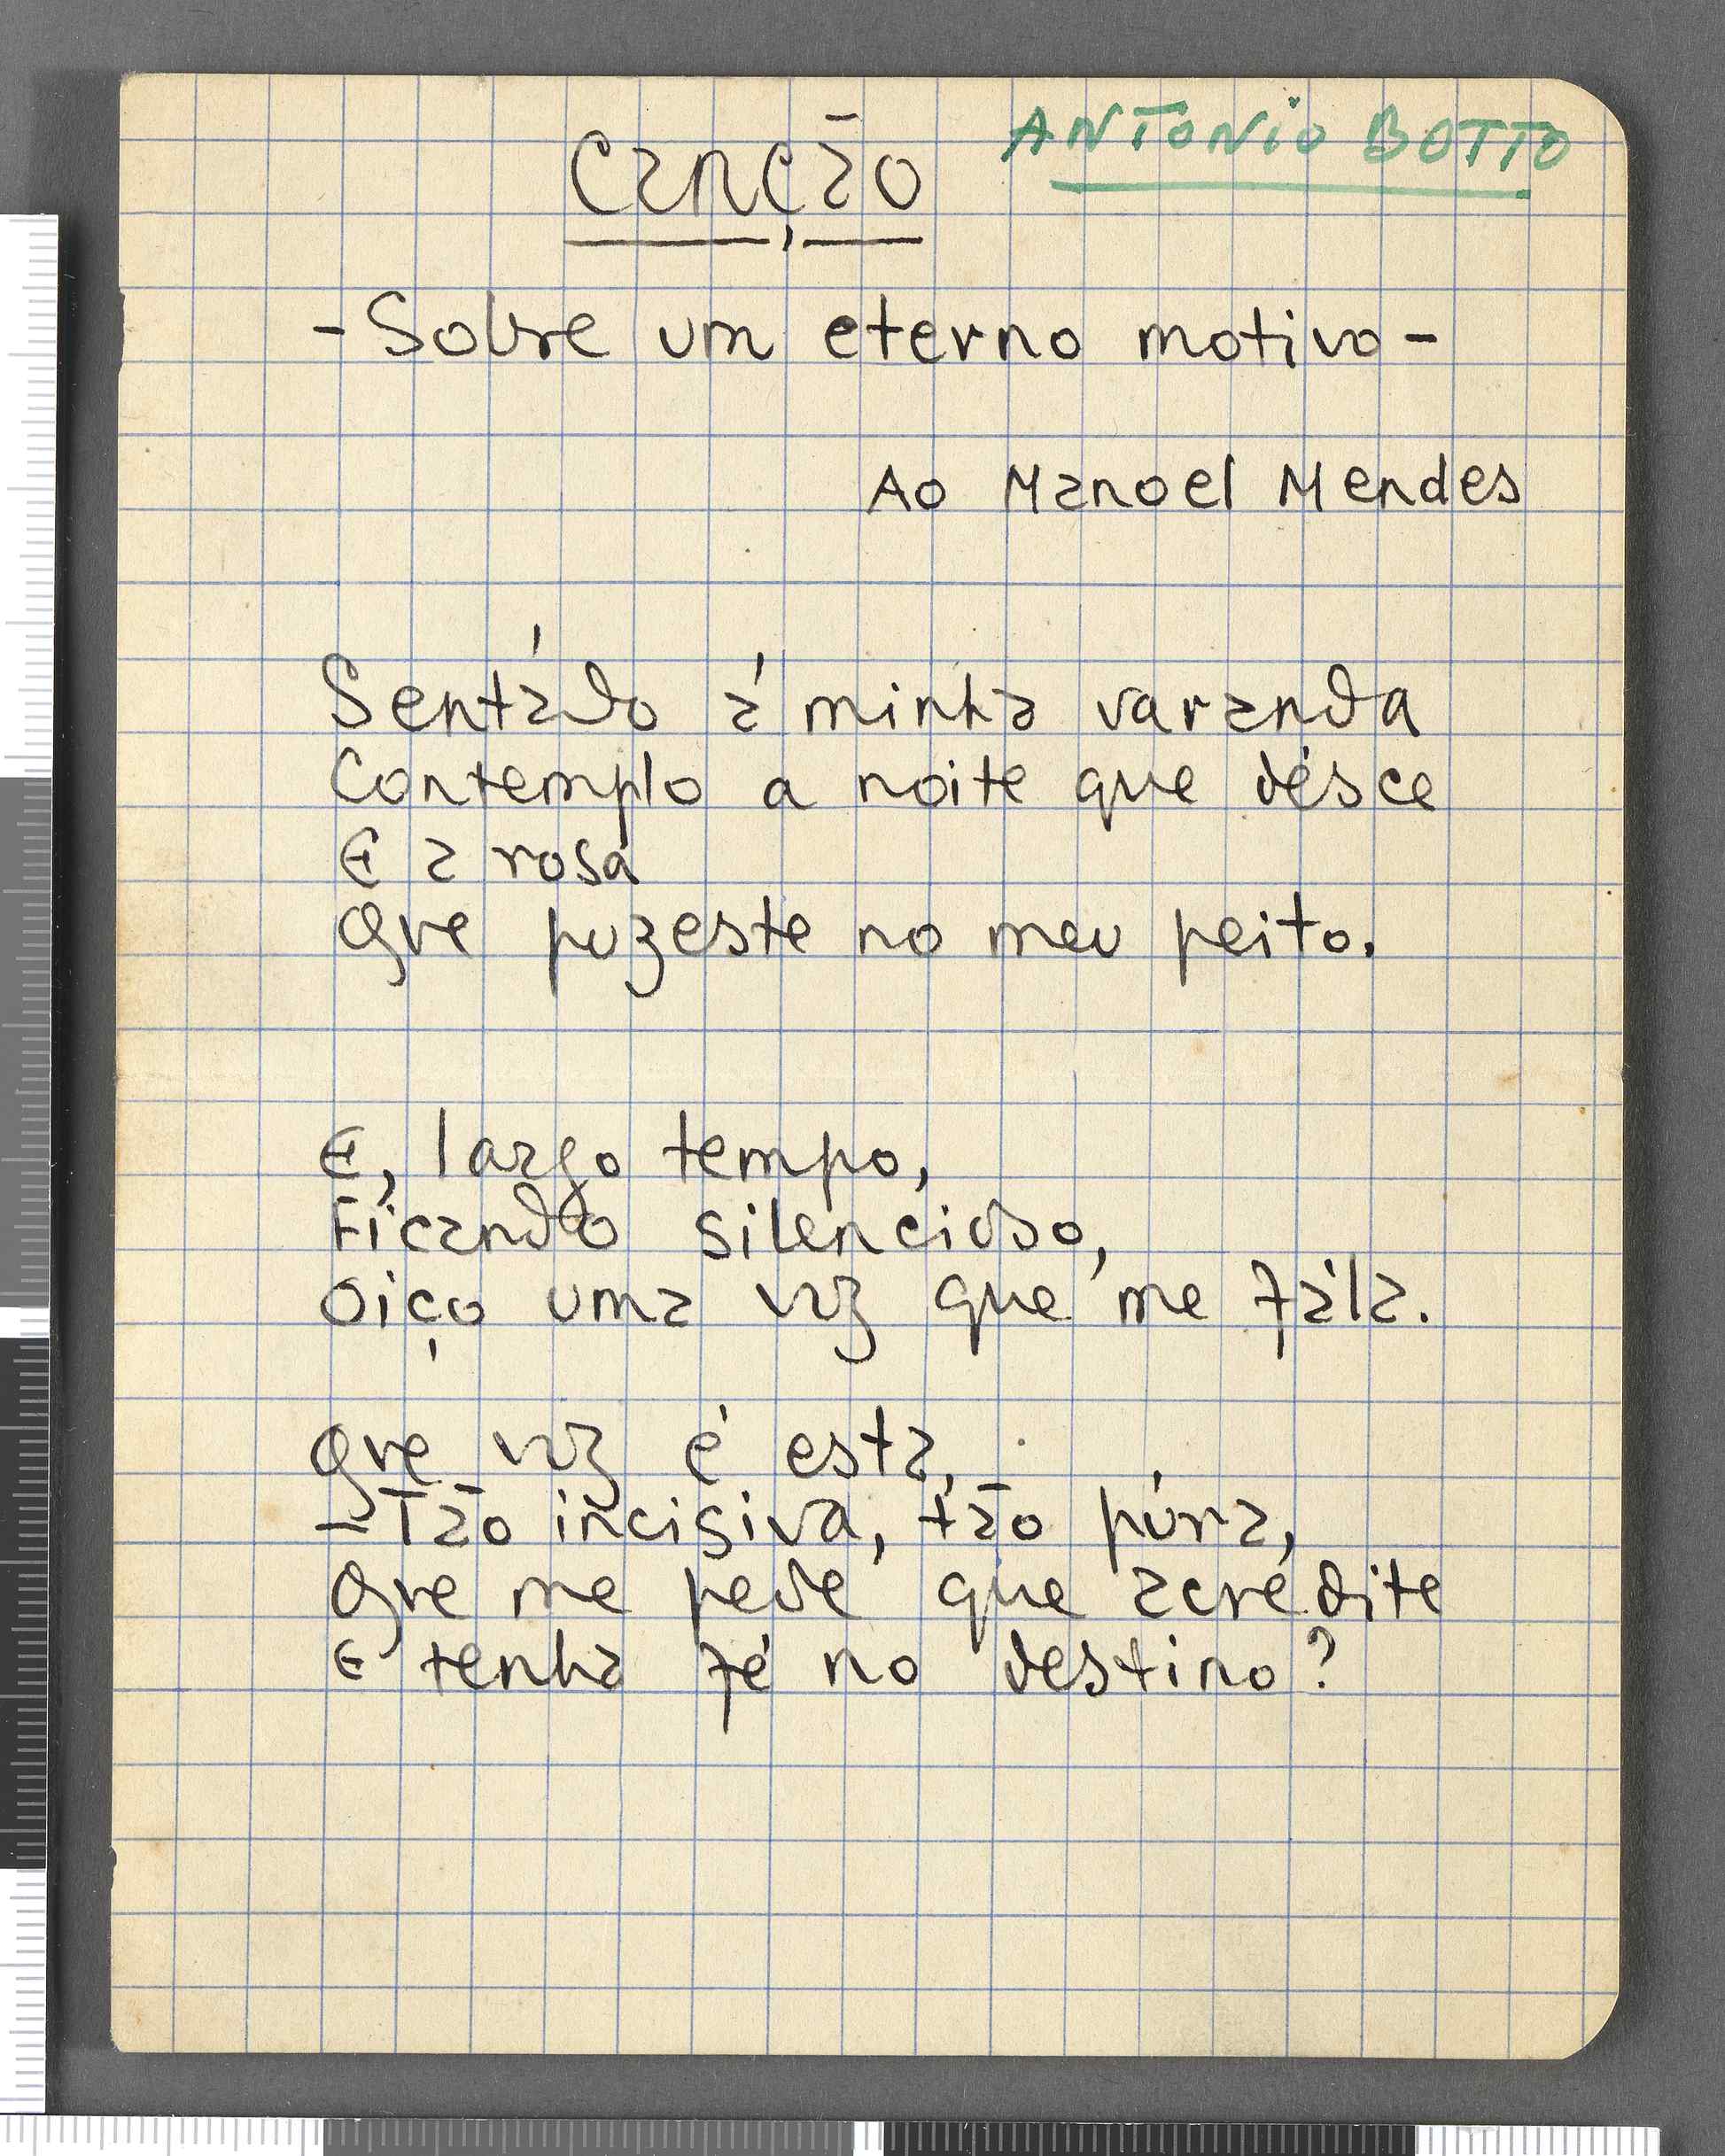 Canção
ANTONIO BOTTO
- Sobre um eterno motivo -
Ao Manoel Mendes
Sentádo á minha varanda
Contemplo a noite que désce
E a rosa
Que puzeste no meu peito.
E, largo tempo,
Ficando silencioso,
Oiço uma voz que me fála.
Que voz é esta,
- Tão incisiva, tão púra,
Que me pede que acredite
E tenha fé no destino?